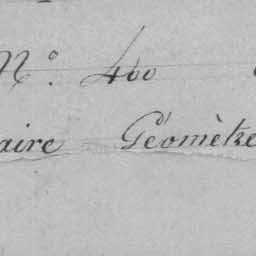 N° 460
aire Géomètre